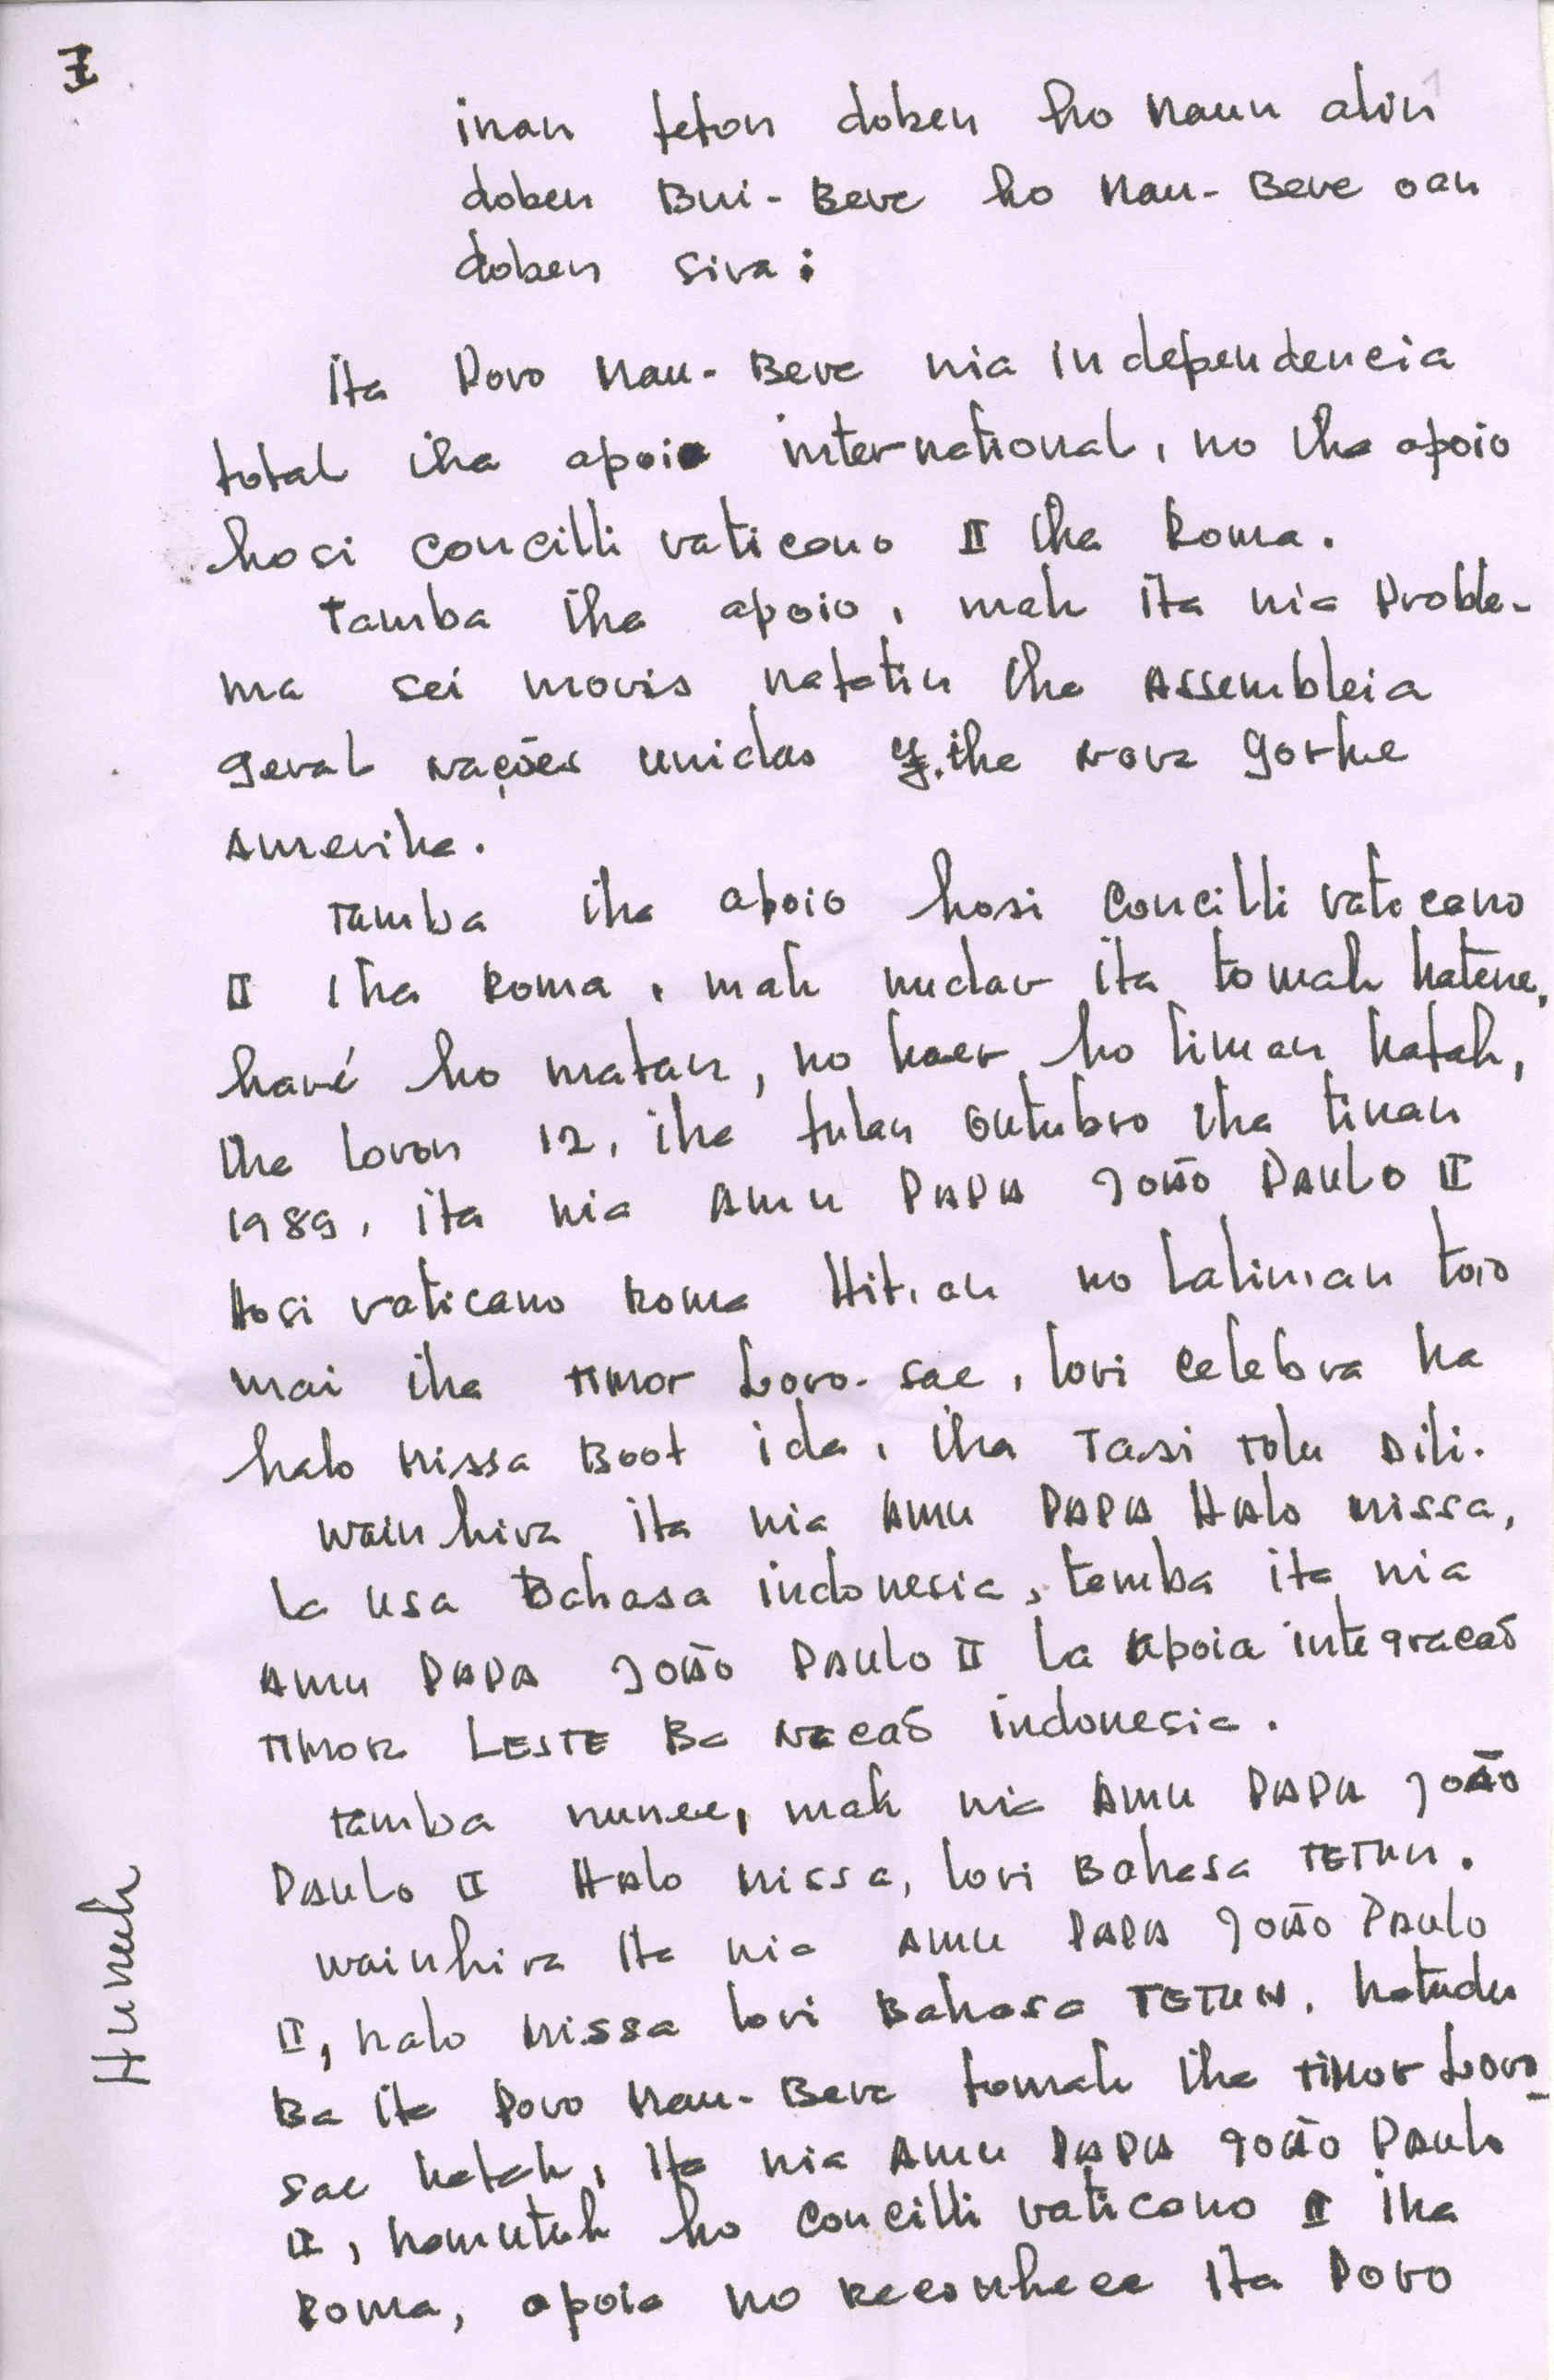 I
inan feton doben ho Maun alin
doben Bui-Bere ho Mau-Bere oan
doben sira:
Ita Povo Mau-Bere nia independencia
total iha apoio international, no iha apoio
hosi concilli vaticano II iha Roma.
Tamba iha apoio, mak ita nia Proble-
ma sei moris nafatin iha Assembleia
geral nações unidas iha nova yorke
Amerika.
Tamba iha apoio hosi concilli vaticano
II iha Roma, mak nudar ita tomak hatene,
haré ho matan, no kaer ho liman katak,
iha loron 12, iha fulan outubro iha tinan
1989, ita nia Amu PAPA João PAULO II
Hosi vaticano Roma Hit.an no laliman too
mai iha Timor Loro-sae, lori celebra ka
halo Missa Boot ida, iha Tasi Tolu Dili.
Wainhira ita nia AMU PAPA HAlo Missa,
la usa Bahasa indonesia, tamba ita nia
AMU PAPA João PAULO II la apoia integracaõ
TIMOR LESTE Ba Nacaõ indonesia.
Tamba nunee, mak nia AMU PAPA João
PAULO II HAlo Missa, lori Bahasa TETUN.
Wainhira ita nia AMU PAPA João PAULO
II, halo Missa lori Bahasa TETUN, hatudu
Ba ita Povo Mau-Bere tomak iha Timor Loro-
sae katak, ita nia AMU PAPA João PAULO
II, hamutuk ho concilli vaticano II iha
Roma, apoia no Reconhece ita Povo
Hunuk